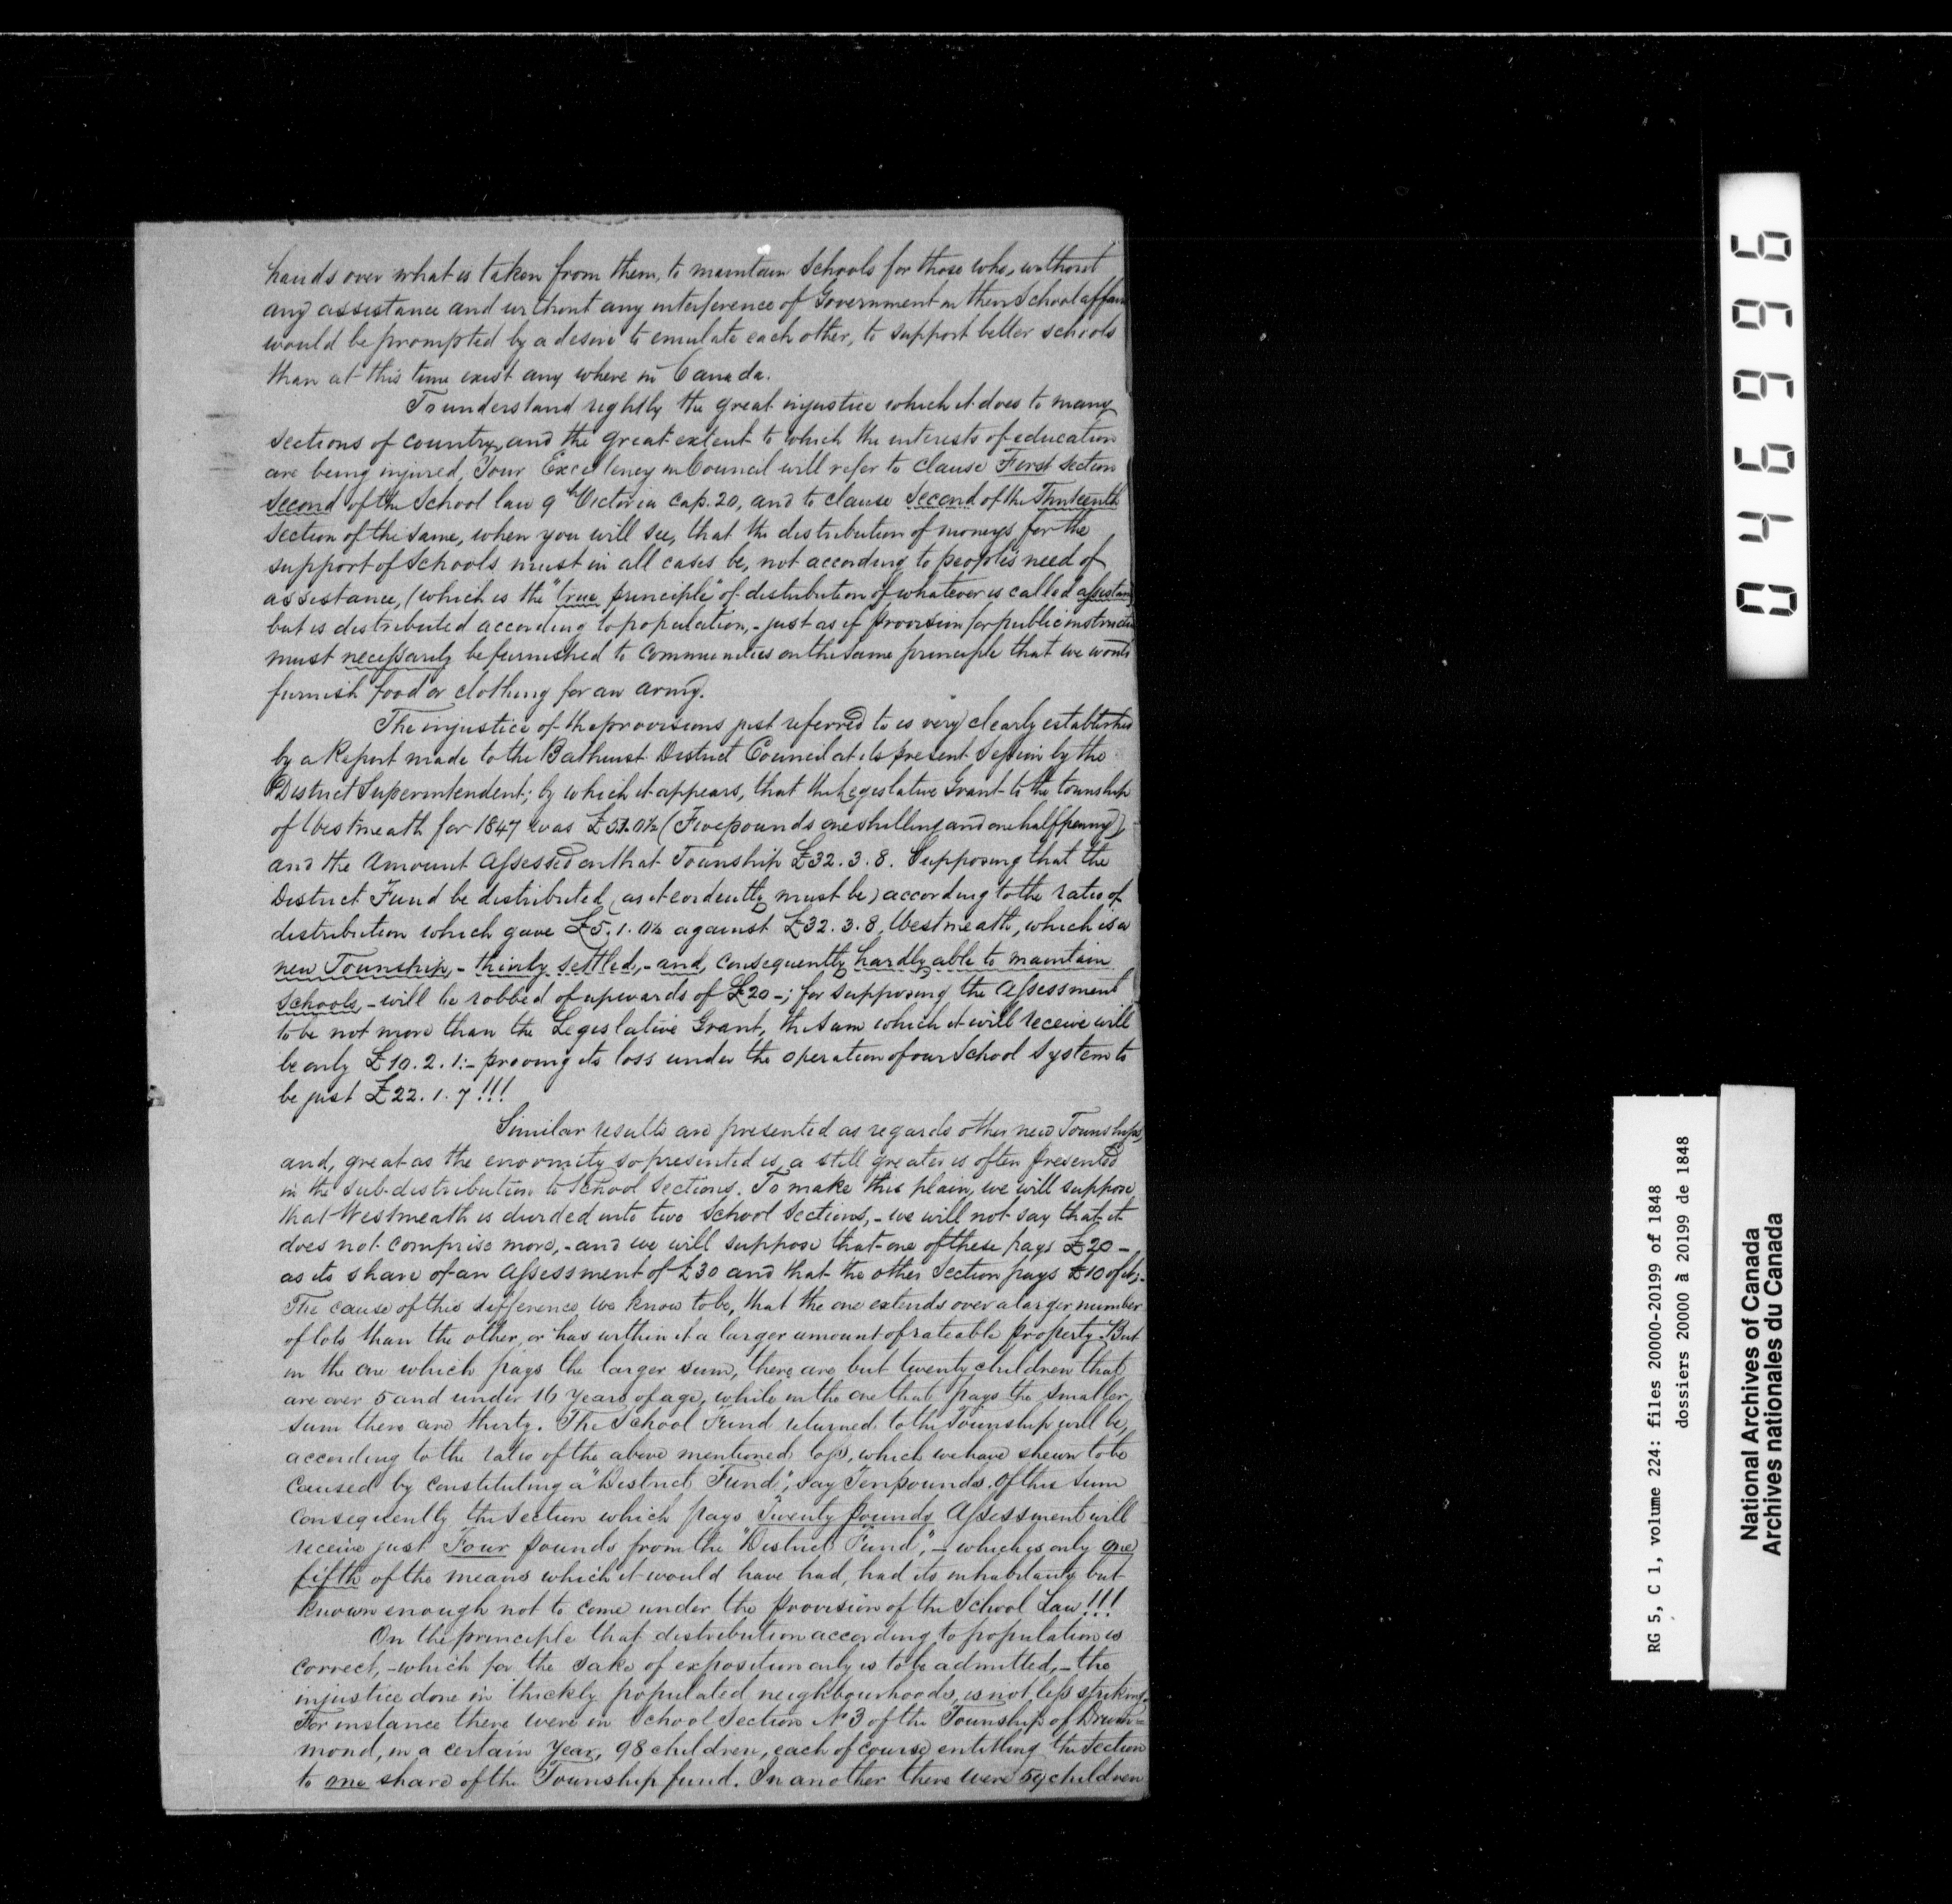 hands over what is taken from them, to maintain Schools for those who, without
any assistance and without any interference of Government in their School affairs
would be prompted by a desire to emulate each other, to support better schools
than at this time exist any where in Canada.
To understand rightly the great injustice which it does to many
sections of country, and the great extent to which the interests of education
are being injured, Your Excellency in Council will refer to clause First section
Second of the School law 9th Victoria Cap. 20, and to clause Second of the Thirteenth
section of the same, when you will see, that the distribution of moneys for the
support of Schools must in all cases be, not according to people's need of
assistance, (which is the "true principle" of distribution of whatever is called assistance)
but is distributed according to population, - just as if provision for public instruction
must necessarily be furnished to communities on the same principle that we would
furnish food or clothing for an army.
The injustice of the provisions just referred to is very clearly established
by a Report made to the Bathurst District Council at its present Session by the
District Superintendent; by which it appears, that the Legislative Grant to the township
of Westmeath for 1847 was £5.1.0½ (Five pounds one shilling and one halfpenny),
and the Amount Assessed on that Township £32.3.8. Supposing that the
District Fund be distributed (as it evidently must be) according to the ratio of
distribution which gave £5.1.0½ against £32.3.8, Westmeath, which is a
new Township, - thinly settled, - and, consequently hardly able to maintain
Schools, - will be robbed of upwards of £20 -; for supposing the Assessment
to be not more than the Legislative Grant, the sum which it will receive will
be only £10.2.1:- proving its loss under the operation of our School System to
be just £22.1.7!!!
Similar results are presented as regards other new Townships,
and, great as the enormity so presented is, a still greater is often presented
in the sub-distribution to School Sections. To make this plain, we will suppose
that Westmeath is divided into two School Sections, - we will not say that it
does not comprise more, - and we will suppose that one of these pays £20 -
as its share of an Assessment of £30 and that the other Section pays £10 of it; -
The cause of this difference we know to be, that the one extends over a larger number
of lots than the other, or has within it a larger amount of rateable property. But
in the one which pays the larger sum, there are but twenty children that
are over 5 and under 16 years of age, while in the one that pays the smaller
sum there are thirty. The School Fund returned to the Township will be,
according to the ratio of the above mentioned loss, which we have shewn to be
caused by constituting a "District Fund", say Ten pounds. Of this sum
consequently the Section which pays Twenty pounds Assessment will
receive just Four pounds from the "District Fund", - which is only one
fifth of the means which it would have had, had its inhabitants but
known enough not to come under the provision of the School Law!!!
On the principle that distribution according to population is
correct, - which for the sake of exposition only is to be admitted, - the
injustice done in thickly populated neighbourhoods, is not less striking.
For instance there were in School Section No 3 of the Township of Drum=
mond, in a certain Year, 98 children, each of course entitling the Section
to one share of the Township fund. In another there were 59 children
046996
RG 5, C 1, volume 224: files 20000-20199 of 1848
dossiers 20000 à 20199 de 1848
National Archives of Canada
Archives nationales du Canada